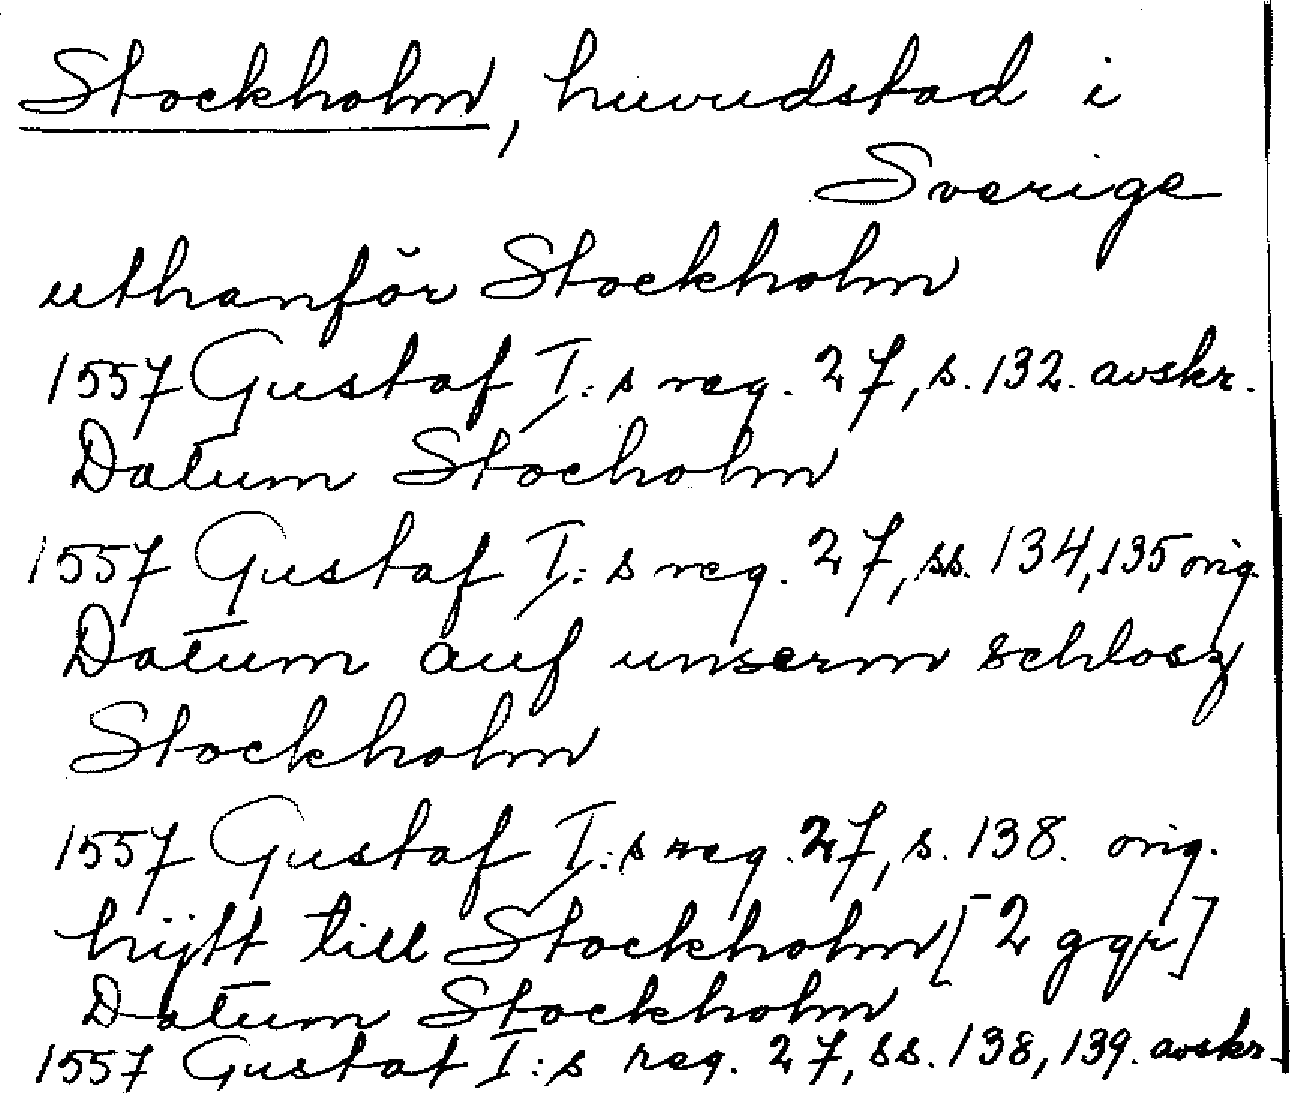 Stockholm, huvudstad i
Sverige
uthanför Stockholm
1557 Gustaf I:s reg. 27, s. 132. avskr.
Datum Stocholm
1557 Gustaf I:s reg. 27, ss. 134, 135 orig.
Datum auf unserm schlosz
Stockholm
1557 Gustaf I:s reg. 27, s. 138. orig.
hijtt till Stockholm [2 ggr]
Datum Stockholm
1557 Gustaf I:s reg. 27, ss. 138, 139. avskr.